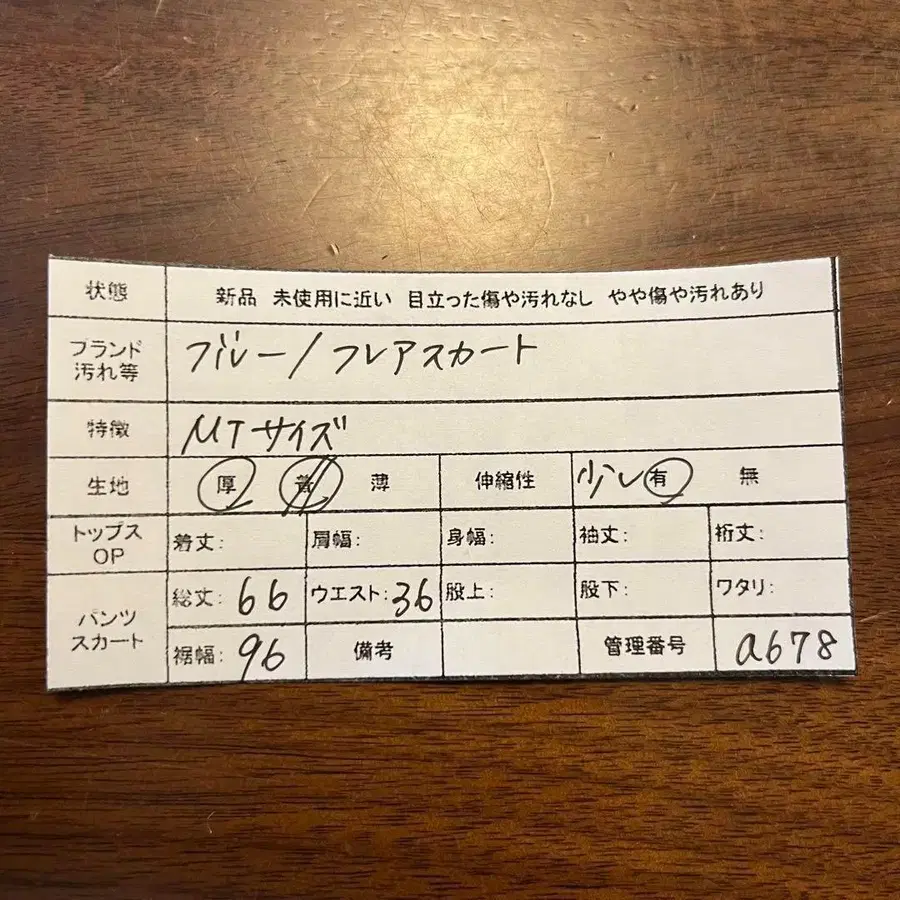 状態 新品 未使用に近い 目立った傷や汚れなし やや傷や汚れあり
ブランド
汚れ等
ブルー/フレアスカート
特徴 MTサイズ
生地 厚 薄 伸縮性 少し有 無
トップス
OP
着丈: 肩幅: 身幅: 袖丈: 裄丈:
パンツ
スカート
総丈: 66 ウエスト: 36 股上: 股下: ワタリ:
裾幅: 96 備考 管理番号 a678